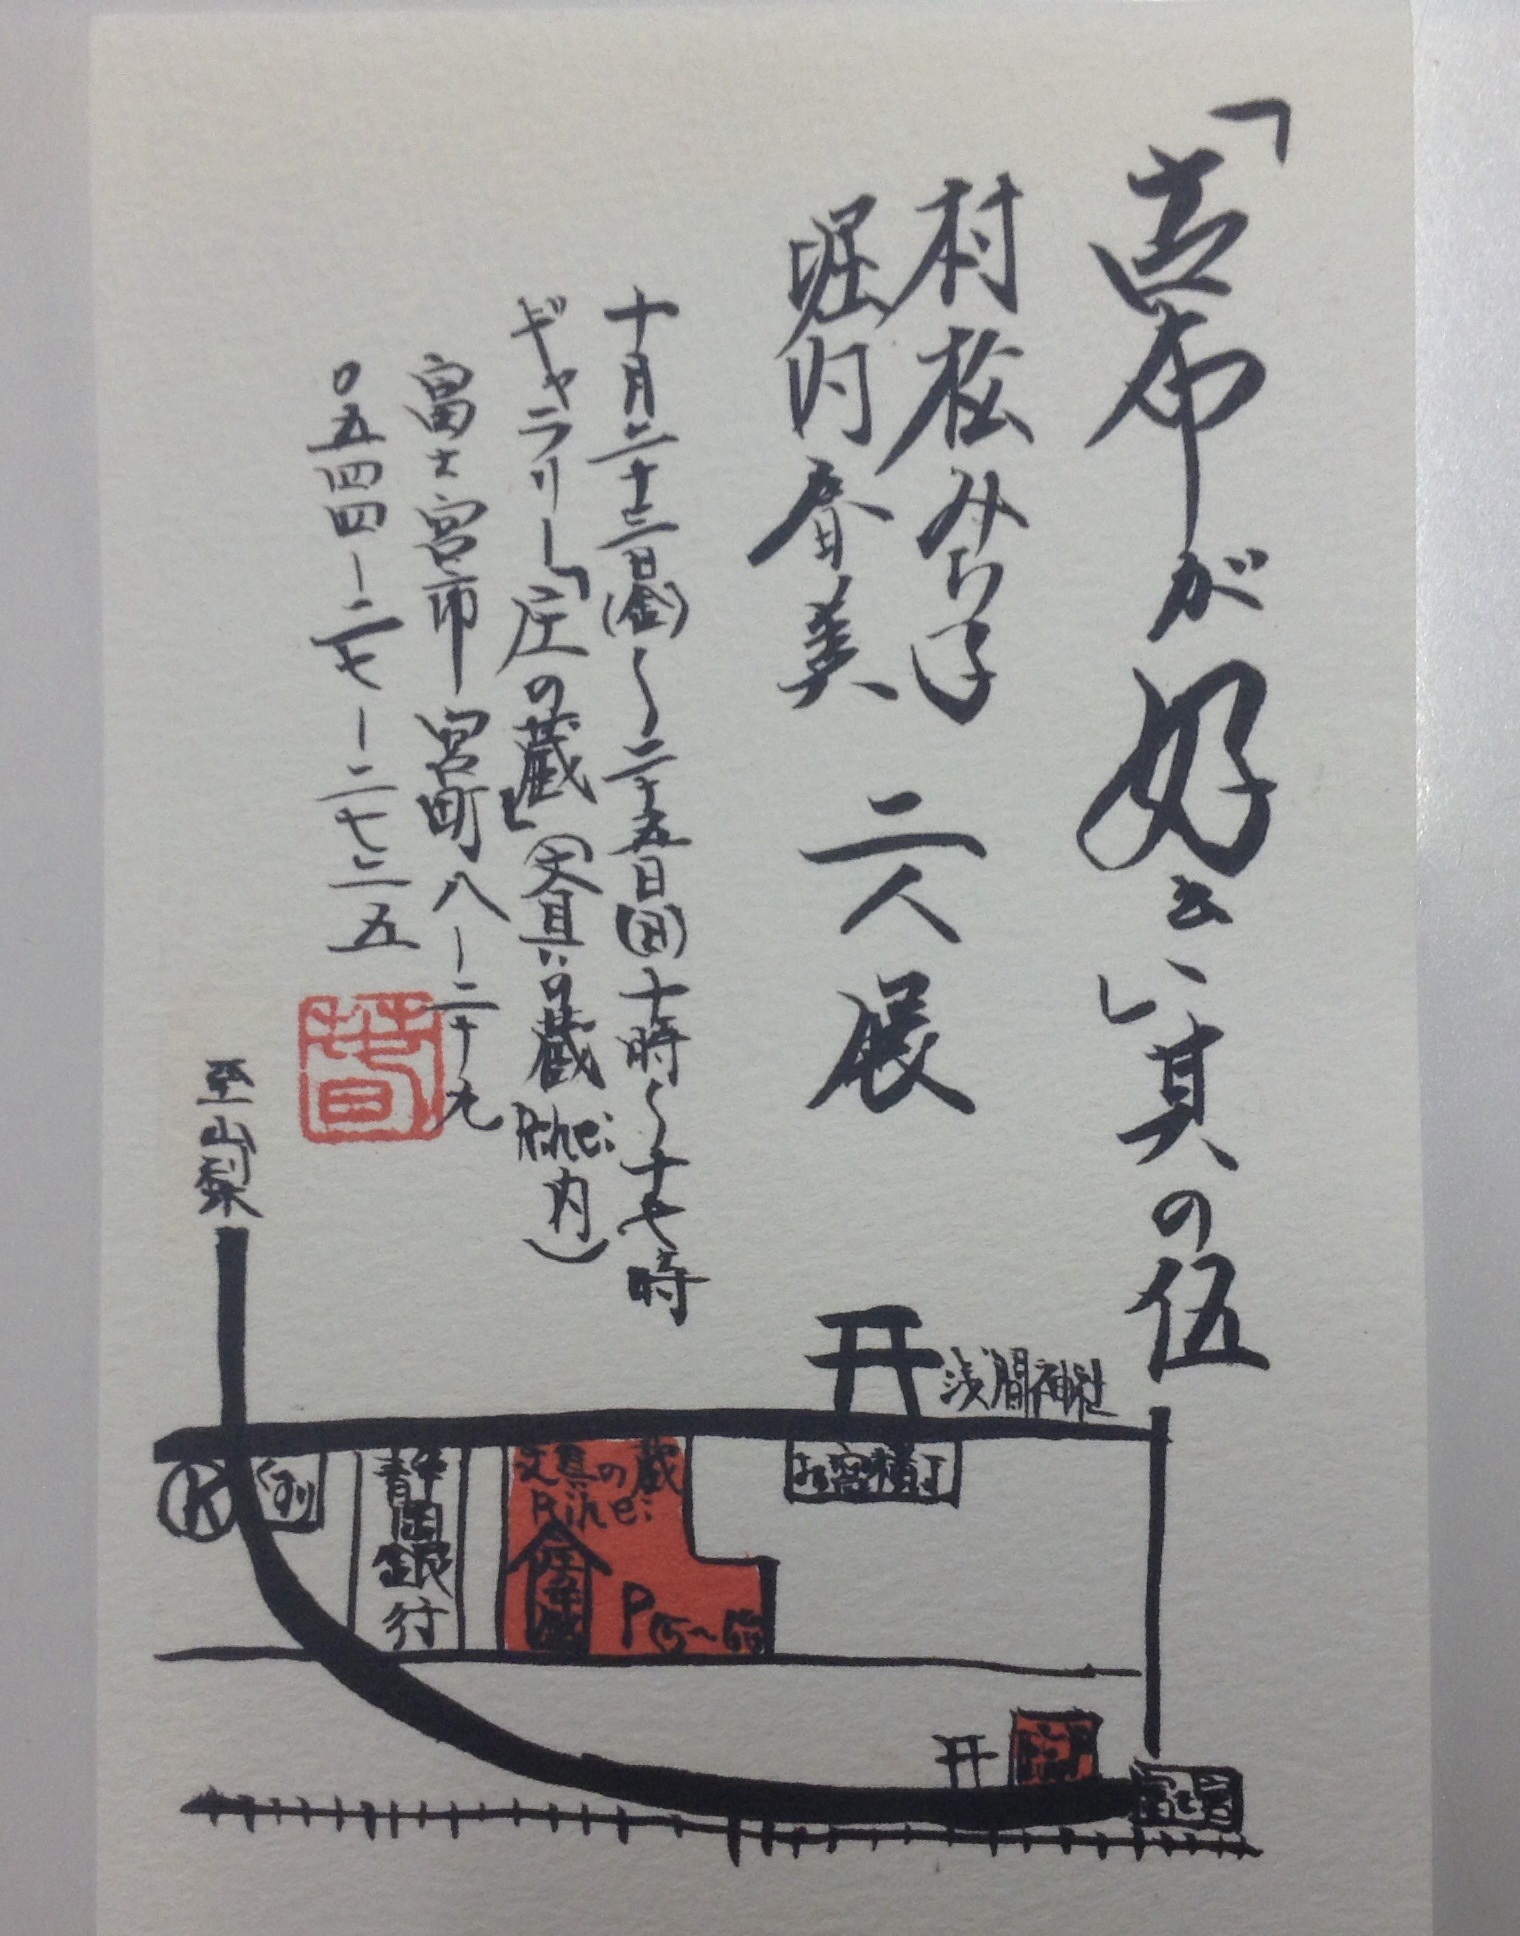 「古布が好き」其の伍
村松みち子
堀内春美
二人展
十月二十三日(金)〜二十五日(日)十時〜十七時
ギャラリー「庄の蔵」(文具の蔵Rihei内)
富士宮市宮町八-二十九
〇五四四-二七-二七二五
至山梨
浅間神社
お宮横丁
K
静岡銀行
文具の蔵
Rihei
庄の蔵
P(5〜6台)
富士宮